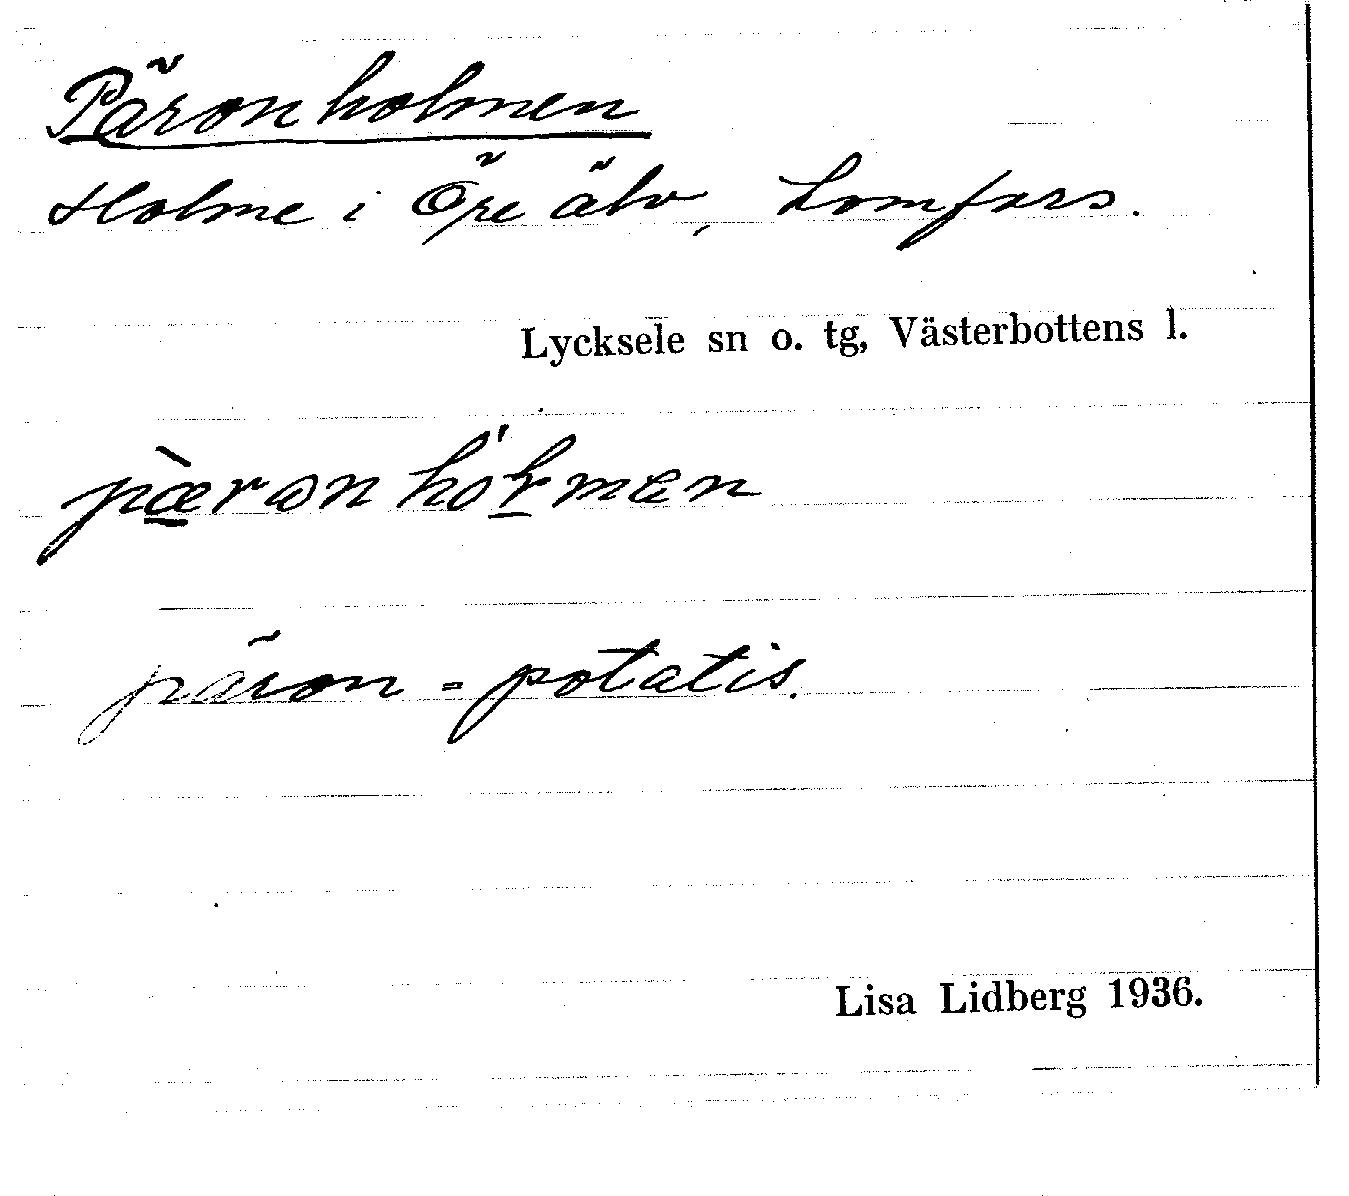 Päronholmen
Holme i Öre älv, Lomfors.
Lycksele sn o. tg, Västerbottens l.
päron = potatis.
Lisa Lidberg 1936.